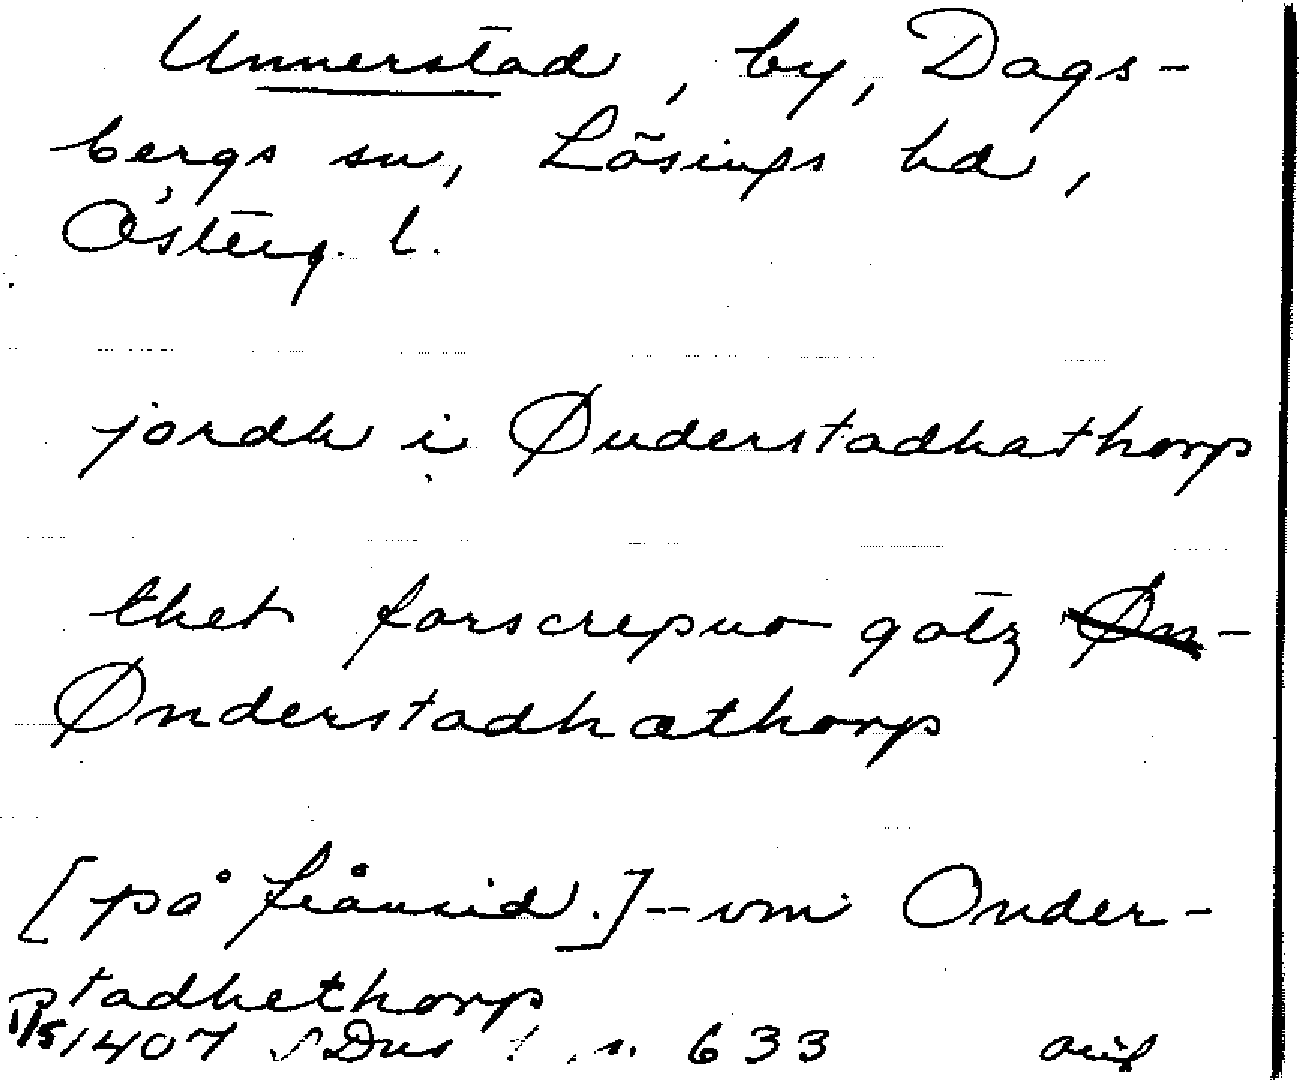 Unnerstad, by, Dags-
bergs sn, Lösings hd,
Österg. l.
jordh i Ønderstadhathorp
thet forscrepno gotz Øn-
Ønderstadhathorp
[på frånsid.] - vm Onder-
stadhethorp
1/5 1407 SDns 1 n. 633 orig